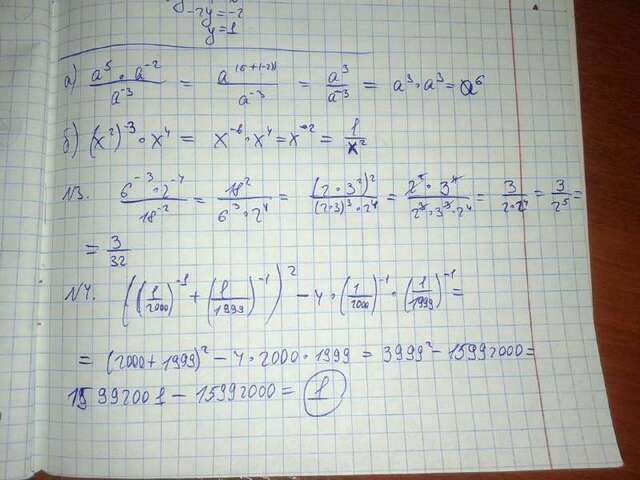 -2y = -2
y = 1
а) a⁵ · a⁻² / a⁻³ = a⁽⁵⁺⁽⁻²⁾⁾ / a⁻³ = a³ / a⁻³ = a³ · a³ = a⁶
б) (x²)⁻³ · x⁴ = x⁻⁶ · x⁴ = x⁻² = 1 / x²
N3. 6⁻³ · 2⁻⁴ / 18⁻² = 18² / 6³ · 2⁴ = (2 · 3²)² / (2·3)³ · 2⁴ = 2² · 3⁴ / 2³ · 3³ · 2⁴ = 3 / 2 · 2⁴ = 3 / 2⁵ =
= 3 / 32
N4. ((1/2000)⁻¹ + (1/1999)⁻¹)² - 4 · (1/2000)⁻¹ · (1/1999)⁻¹ =
= (2000 + 1999)² - 4 · 2000 · 1999 = 3999² - 15992000 =
15992001 - 15992000 = 1